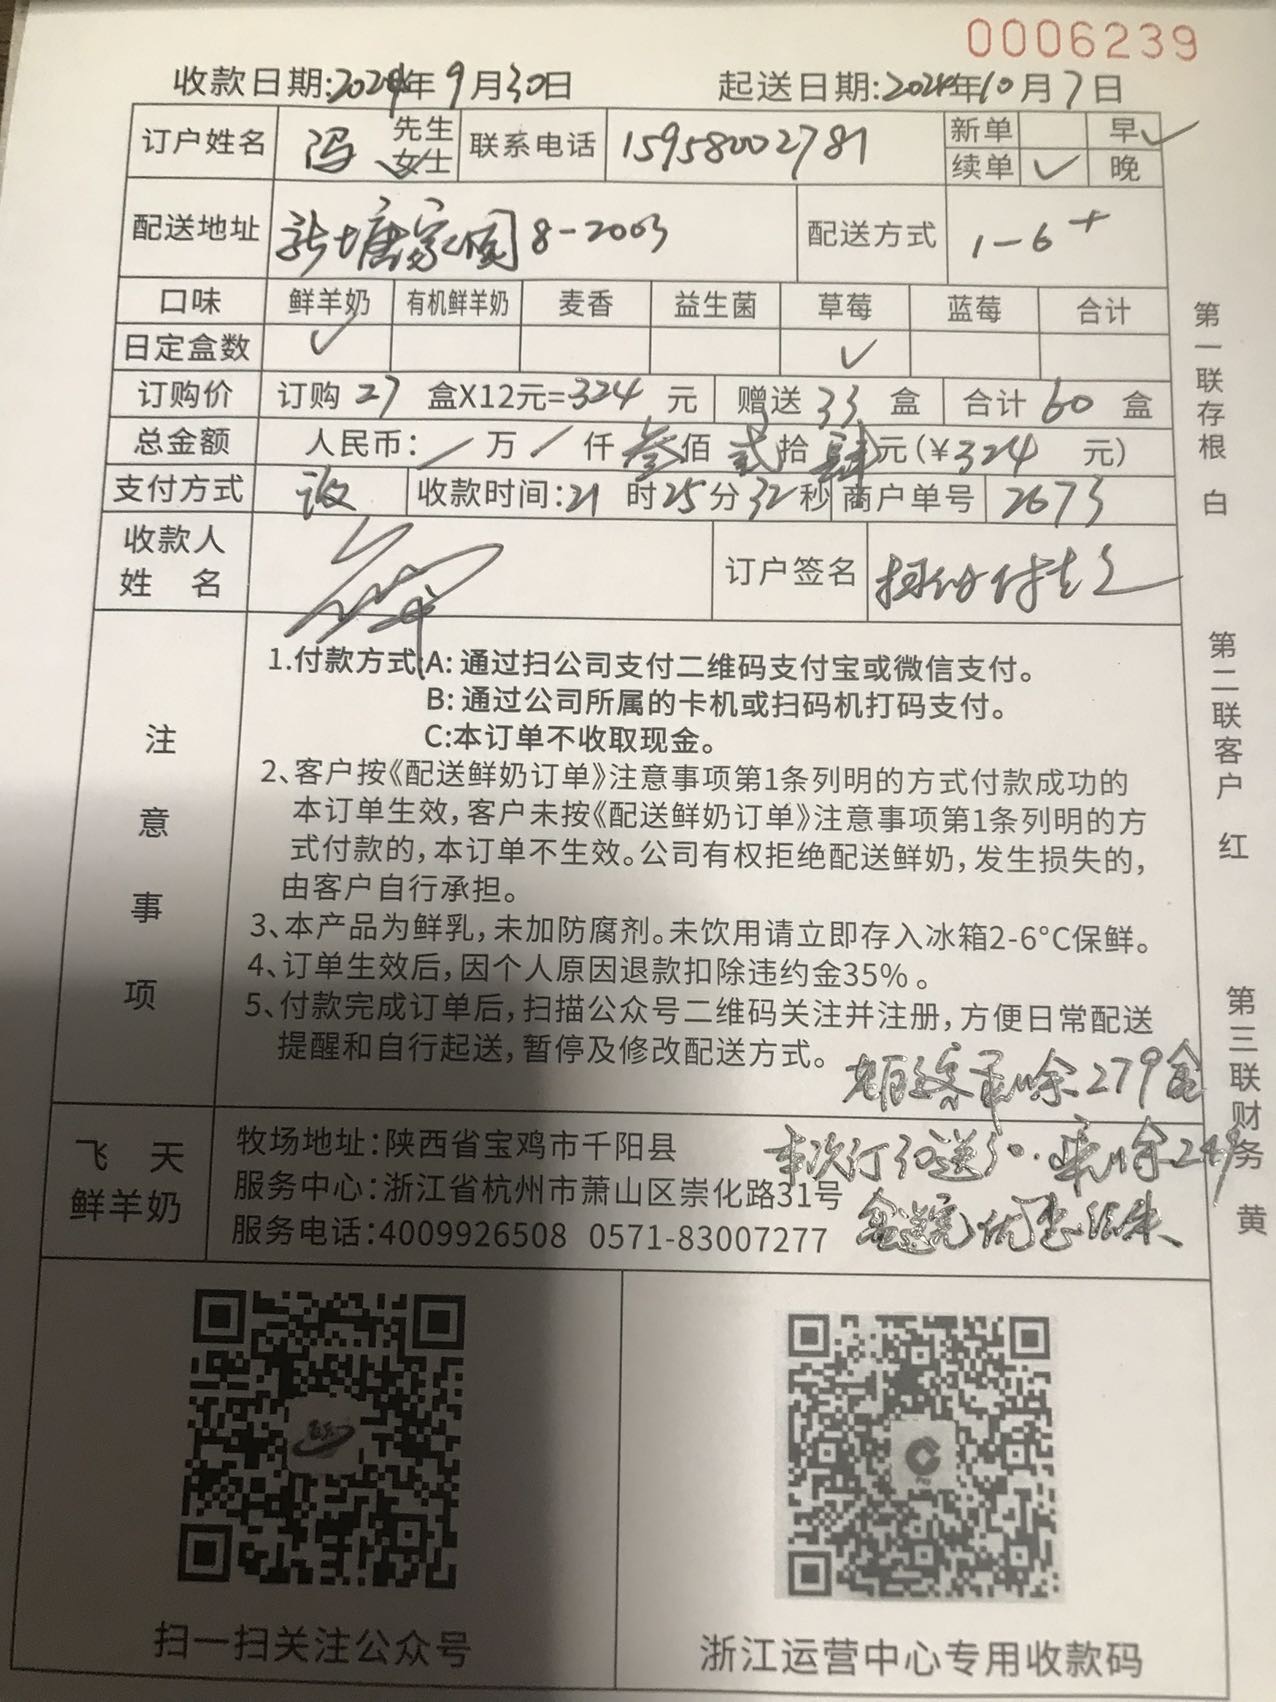 0006239
收款日期:2024年9月30日 起送日期:2024年10月7日
订户姓名 冯 先生 女士 联系电话 15958002781 新单 早✓
续单 ✓ 晚
配送地址 新塘家园8-2003 配送方式 1-6+
口味 鲜羊奶 有机鲜羊奶 麦香 益生菌 草莓 蓝莓 合计
日定盒数 ✓ ✓
订购价 订购 27 盒X12元=324 元 赠送 33 盒 合计 60 盒
总金额 人民币: / 万 / 仟 叁 佰 贰 拾 肆 元(¥324 元)
支付方式 收款时间:21 时25分32秒 商户单号 2673
收款人
姓 名 订户签名 扫码付款
注意事项
1.付款方式:A: 通过扫公司支付二维码支付宝或微信支付。
B: 通过公司所属的卡机或扫码机打码支付。
C:本订单不收取现金。
2、客户按《配送鲜奶订单》注意事项第1条列明的方式付款成功的
本订单生效,客户未按《配送鲜奶订单》注意事项第1条列明的方
式付款的,本订单不生效。公司有权拒绝配送鲜奶,发生损失的,
由客户自行承担。
3、本产品为鲜乳,未加防腐剂。未饮用请立即存入冰箱2-6°C保鲜。
4、订单生效后,因个人原因退款扣除违约金35%。
5、付款完成订单后,扫描公众号二维码关注并注册,方便日常配送
提醒和自行起送,暂停及修改配送方式。
剩余279盒
本次订 送30. 剩余249
盒送完优惠结束
飞 天
鲜羊奶
牧场地址:陕西省宝鸡市千阳县
服务中心:浙江省杭州市萧山区崇化路31号
服务电话:4009926508 0571-83007277
扫一扫关注公众号
浙江运营中心专用收款码
第一联存根 白
第二联客户 红
第三联财务 黄